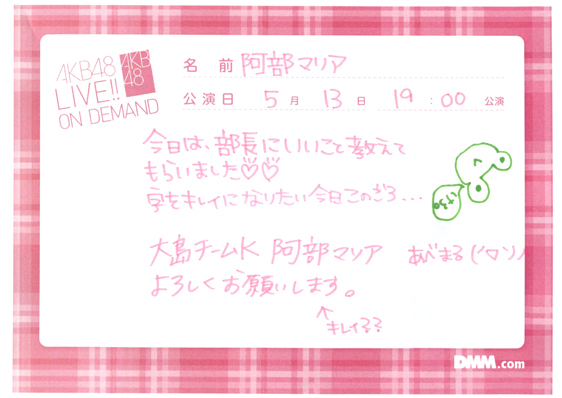 AKB48
LIVE!!
ON DEMAND
AKB
48
名 前 阿部マリア
公演日 5 月 13 日 19 : 00 公演
今日は、部長にいいこと教えて
もらいました♡♡
字をキレイになりたい今日このごろ...
大島チームK 阿部マリア あびまる
よろしくお願いします。
↑
キレイ??
DMM.com